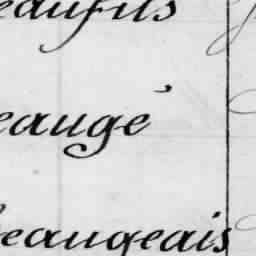 eaufils
eaugé
eaugeais